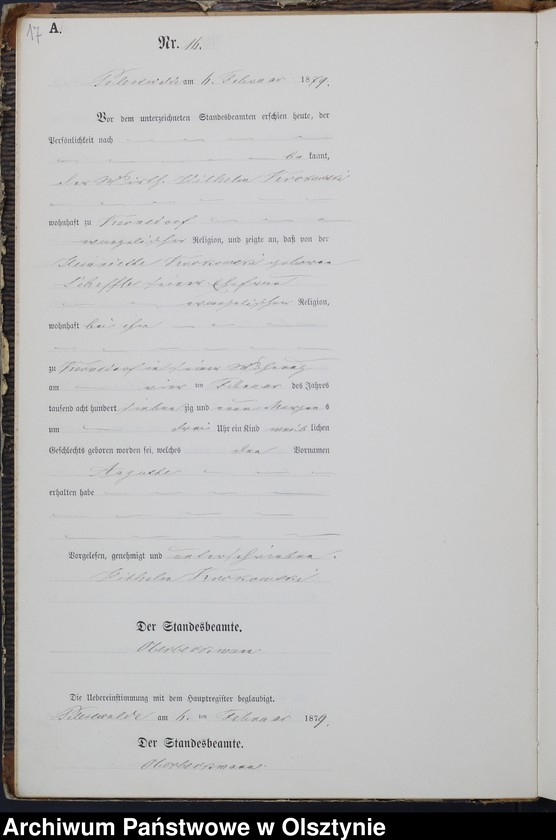 17 A.
Nr. 16.
am 6. Februar 1879.
Vor dem unterzeichneten Standesbeamten erschien heute, der
Persönlichkeit nach
be kannt,
der Wirth Wilhelm Krokowski
wohnhaft zu
evangelischer Religion, und zeigte an, daß von der
Henriette Krokowski geborene
seiner Ehefrau
evangelischen Religion,
wohnhaft bei ihm
zu in seiner Wohnung
am vier ten Februar des Jahres
tausend acht hundert sieben zig und neun Morgens
um drei Uhr ein Kind weib lichen
Geschlechts geboren worden sei, welches den Vornamen
Auguste
erhalten habe
Vorgelesen, genehmigt und unterschrieben.
Wilhelm Krokowski
Der Standesbeamte.
Die Uebereinstimmung mit dem Hauptregister beglaubigt.
am 6. ten Februar 1879.
Der Standesbeamte.
Archiwum Państwowe w Olsztynie